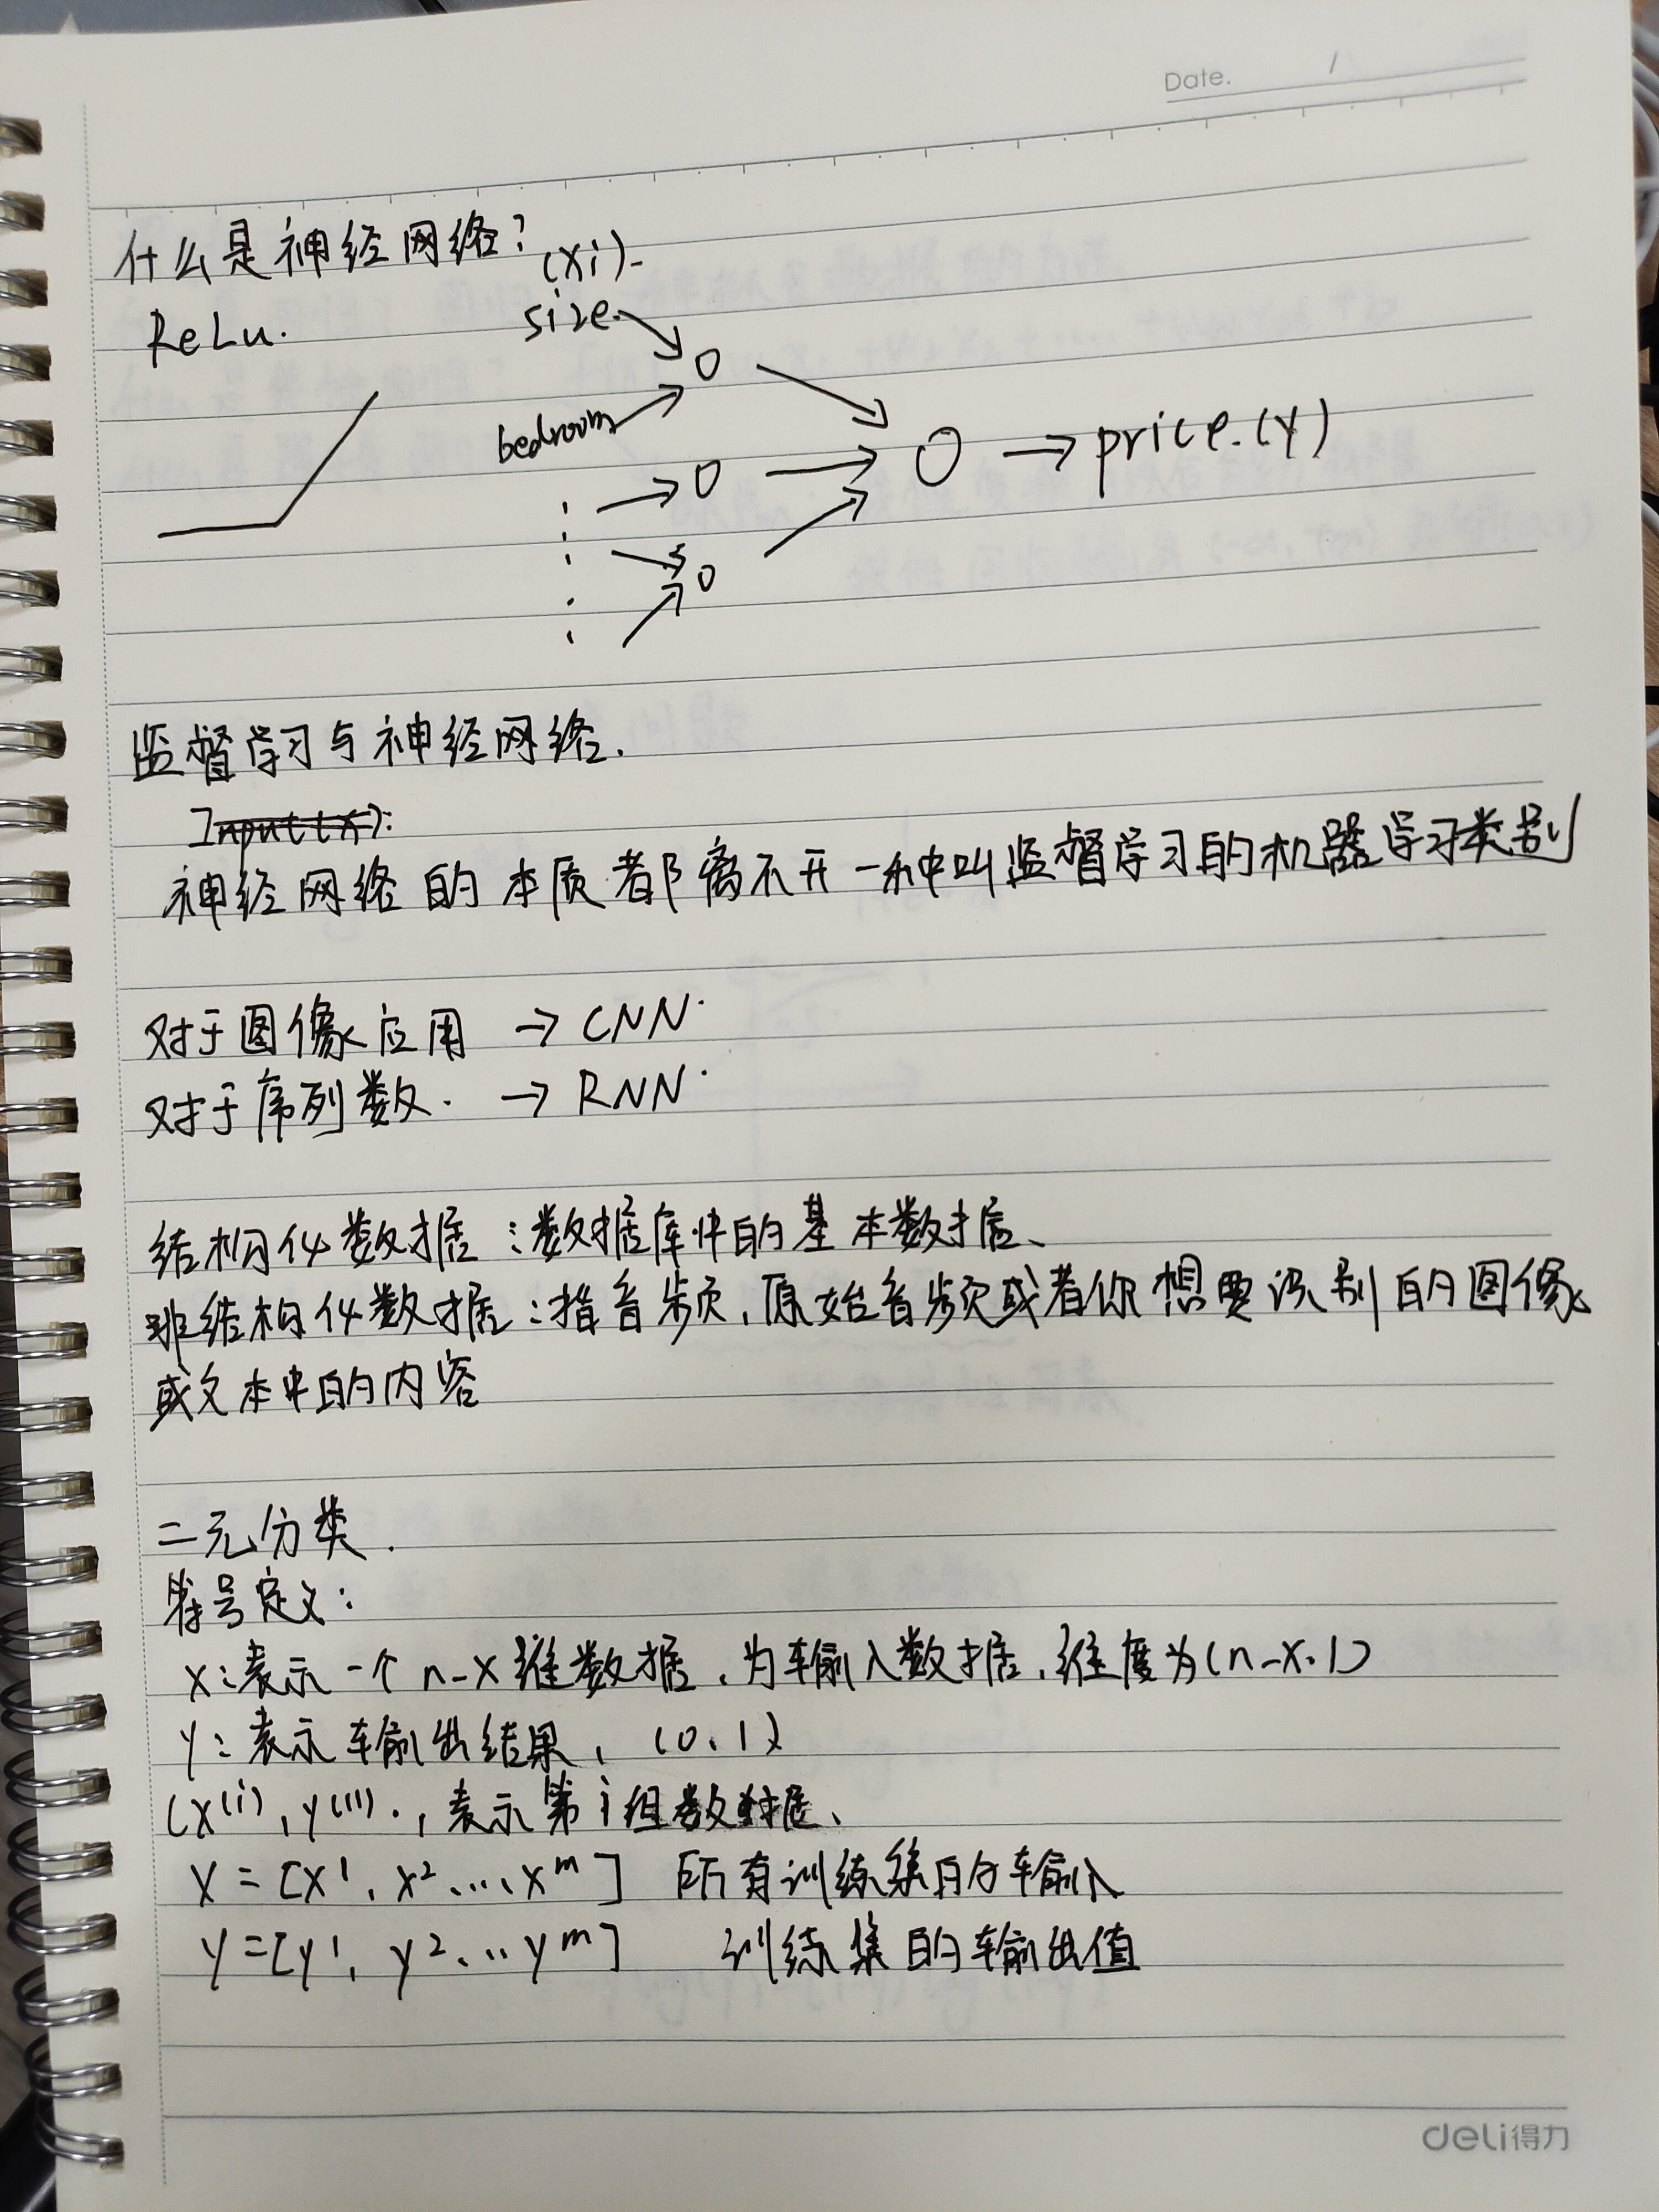 Date. /
什么是神经网络?
(xi)-
ReLu.
size.
bedroom
price.(y)
监督学习与神经网络.
Input(x):
神经网络的本质都离不开一种叫监督学习的机器学习类别
对于图像应用 → CNN.
对于序列数. → RNN.
结构化数据:数据库中的基本数据、
非结构化数据:指音频,原始音频或者你想要识别的图像
或文本中的内容
二元分类.
符号定义:
x:表示一个n_x维数据,为输入数据,维度为(n_x,1)
y:表示输出结果,(0,1)
(x(i),y(i).,表示第i组数据、
X=[x¹,x²、...、x^m] 所有训练集的输入
y=[y¹,y²、...y^m] 训练集的输出值
deli得力